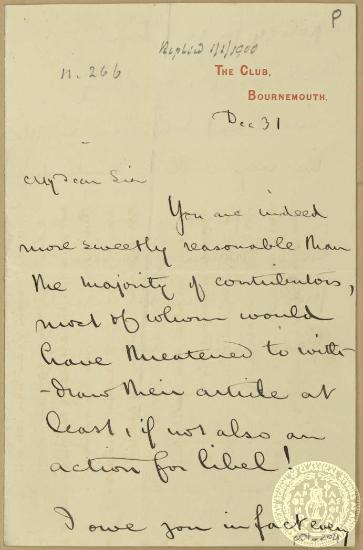 P
Replied 1/1/1900
n. 266
THE CLUB,
BOURNEMOUTH.
Dec 31
My dear Sir
You are indeed
more sweetly reasonable than
the majority of contributors,
most of whom would
have threatened to with-
-draw their article at
least, if not also an
action for libel!
I owe you in fact every